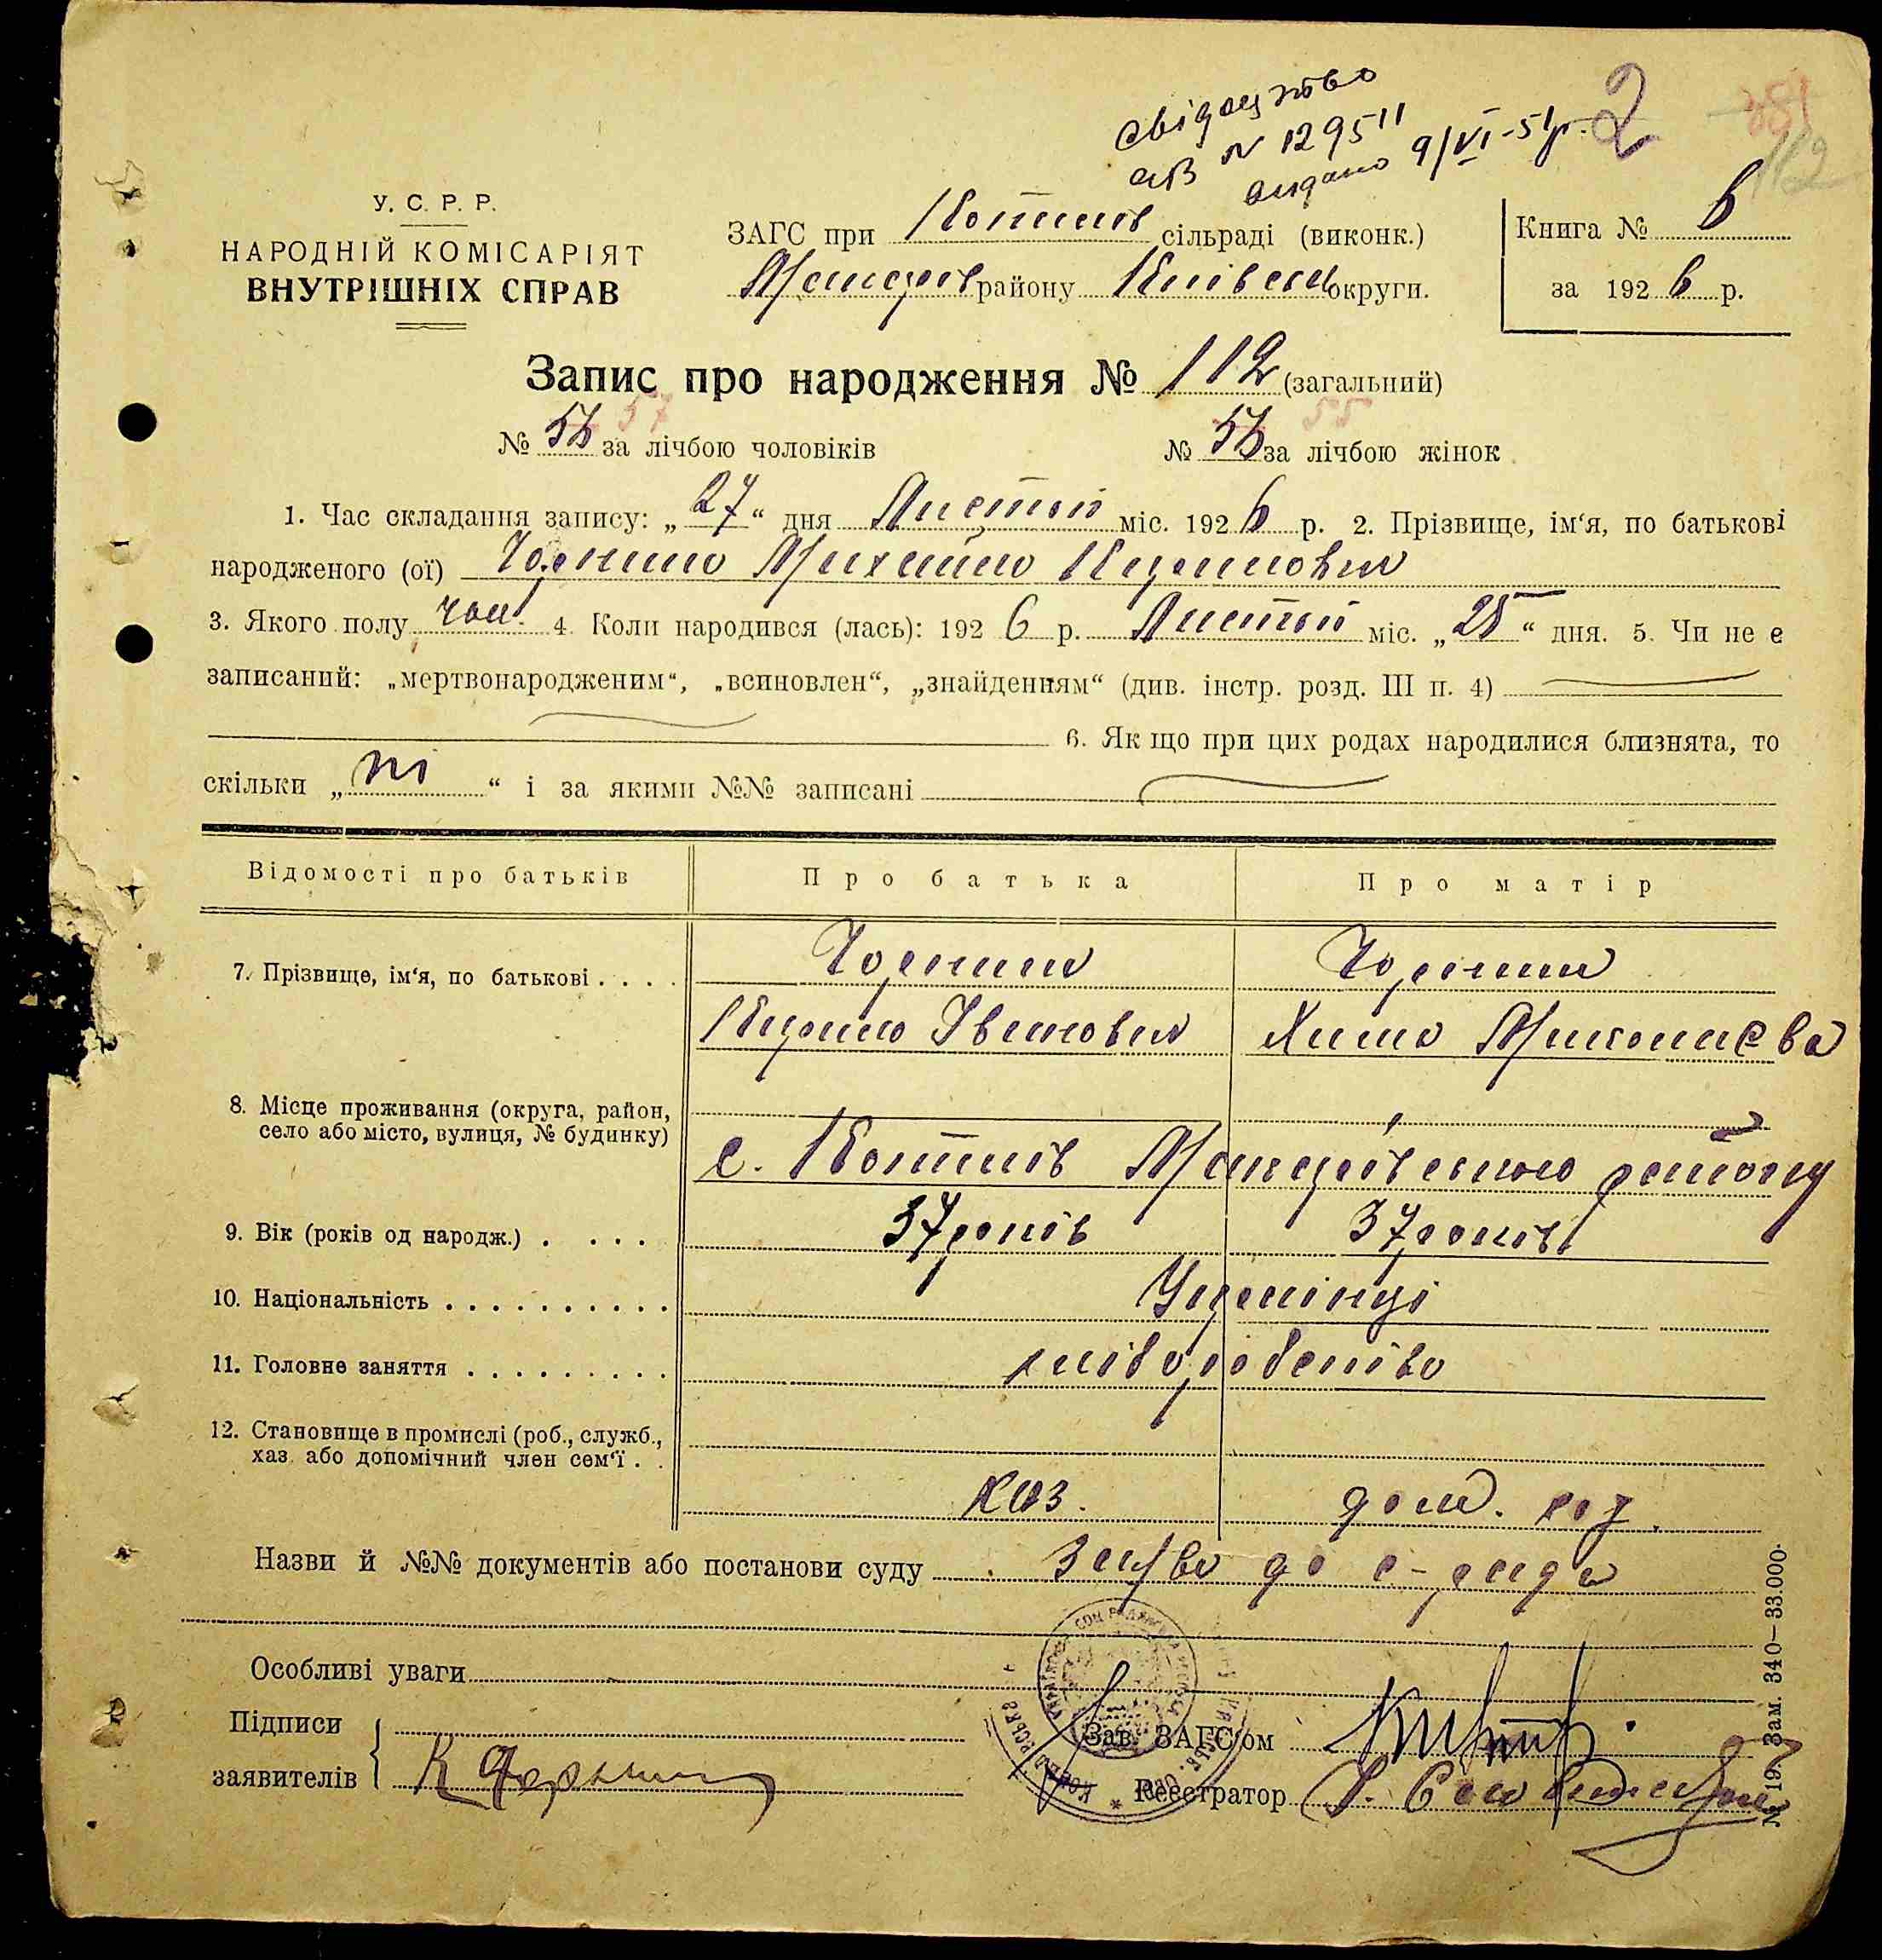 свідоцтво
№ 129511
видано 9/VI-51 р. 2
112
У. С. Р. Р.
НАРОДНІЙ КОМІСАРІЯТ
ВНУТРІШНІХ СПРАВ
ЗАГС при сільраді (виконк.)
району Київськ округи.
Книга № 6
за 1926 р.
Запис про народження № 112 (загальний)
№ за лічбою чоловіків 57
№ за лічбою жінок 55
1. Час складання запису: „27“ дня Листоп міс. 1926 р. 2. Прізвище, ім‘я, по батькові
народженого (ої) Михайло Кирилович
3. Якого полу чол. 4. Коли народився (лась): 1926 р. Листоп міс. „25“ дня. 5. Чи не є
записаний: „мертвонародженим“, „всиновлен“, „знайденням“ (див. інстр. розд. III п. 4)
6. Як що при цих родах народилися близнята, то
скільки „ні“ і за якими №№ записані
Відомості про батьків Про батька Про матір
7. Прізвище, ім‘я, по батькові . . . .
Кирило Іванович Миколаєва
8. Місце проживання (округа, район,
село або місто, вулиця, № будинку)
с. району
9. Вік (років од народж.) . . . . 37 років 37 років
10. Національність . . . . . . . . . . Українці
11. Головне заняття . . . . . . . . . хліборобство
12. Становище в промислі (роб., служб.,
хаз. або допомічний член сем‘ї . .
хаз. дом. хоз.
Назви й №№ документів або постанови суду Заява до с-ради
Особливі уваги
Підписи
заявителів
Зав. ЗАГС‘ом
Реєстратор
№ 19. Зам. 340–33000.